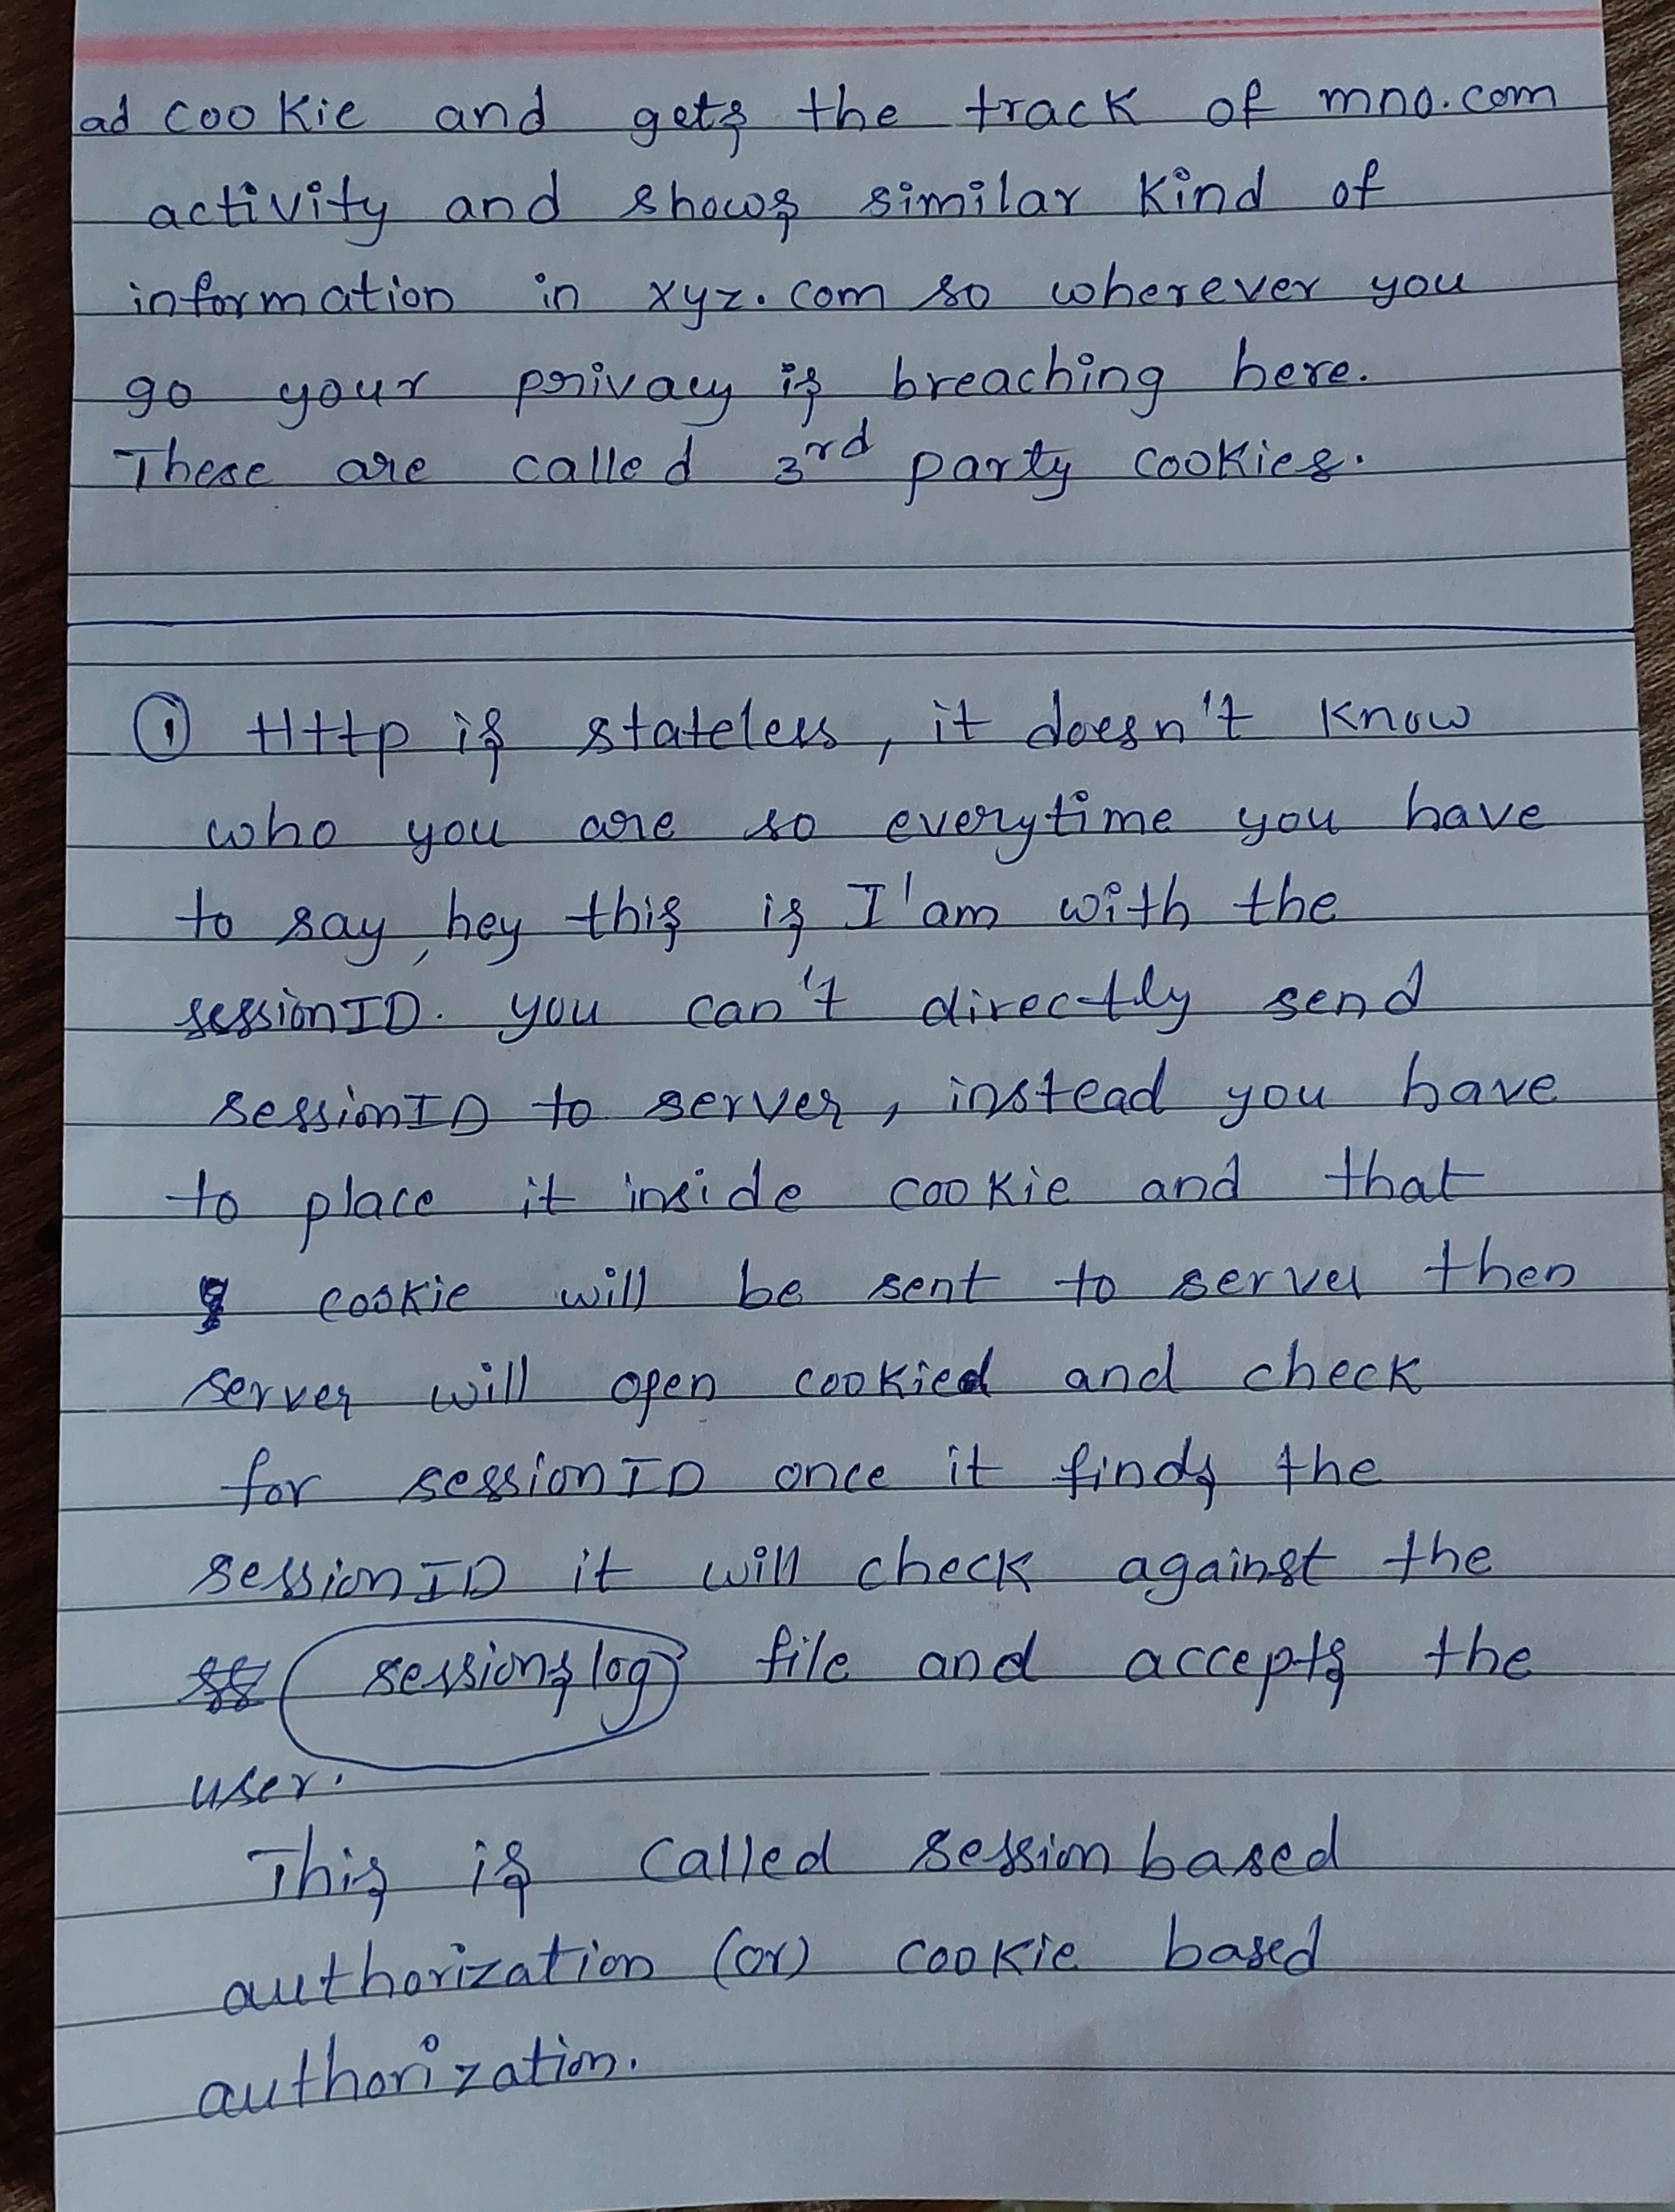 ad cookie and gets the track of mno.com
activity and shows similar kind of
information in xyz.com so wherever you
go your privacy is breaching here.
These are called 3rd party cookies.
① Http is stateless, it doesn't know
who you are so everytime you have
to say, hey this is I'am with the
sessionID. you can't directly send
sessionID to server, instead you have
to place it inside cookie and that
cookie will be sent to server then
server will open cookied and check
for sessionID once it finds the
sessionID it will check against the
sessionslog file and accepts the
user.
This is called session based
authorization (or) cookie based
authorization.